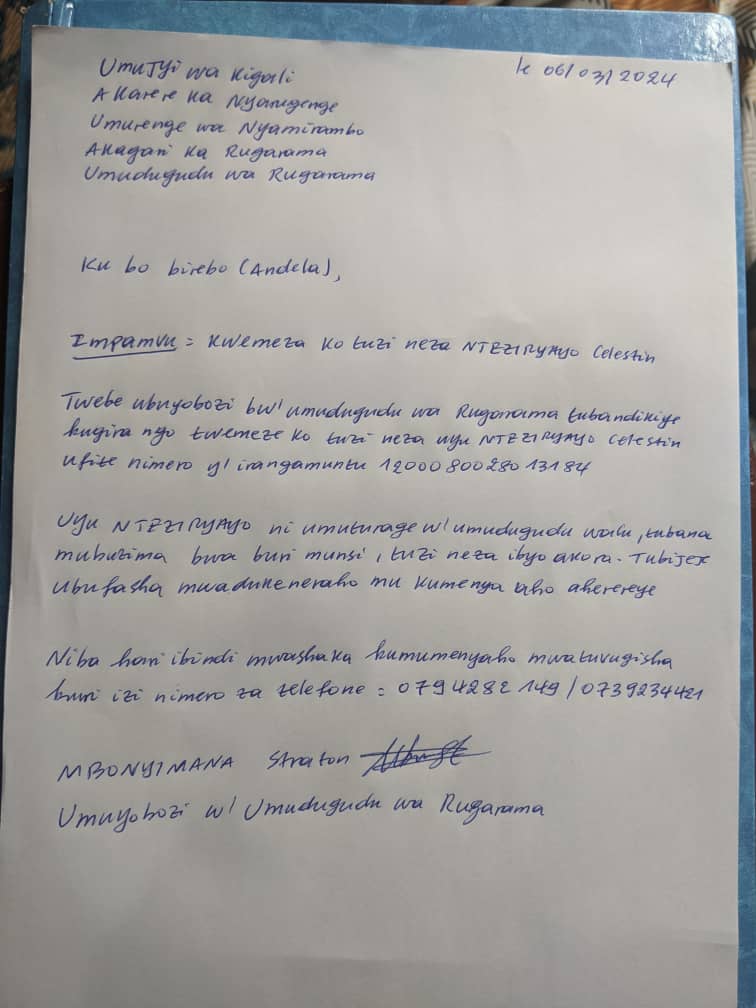 Umujyi wa Kigali
le 06/03/2024
Akarere ka Nyarugenge
Umurenge wa Nyamirambo
Akagari ka Rugarama
Umudugudu wa Rugarama
Ku bo bireba (Andela),
Impamvu = Kwemeza ko tuzi neza NTEZIRYAYO Celestin
Twebe ubuyobozi bw'umudugudu wa Rugarama tubandikiye
kugira ngo twemeze ko tuzi neza uyu NTEZIRYAYO Celestin
ufite nimero y'irangamuntu 1200080028013184
Uyu NTEZIRYAYO ni umuturage w'umudugudu wacu, tubana
mubuzima bwa buri munsi, tuzi neza ibyo akora. Tubijeje
ubufasha mwadukeneraho mu kumenya aho aherereye
Niba hari ibindi mwashaka kumumenyaho mwatuvugisha
kuri izi nimero za telefone = 0794282149 / 0739234421
MBONYIMANA Straton
Umuyobozi w'Umudugudu wa Rugarama